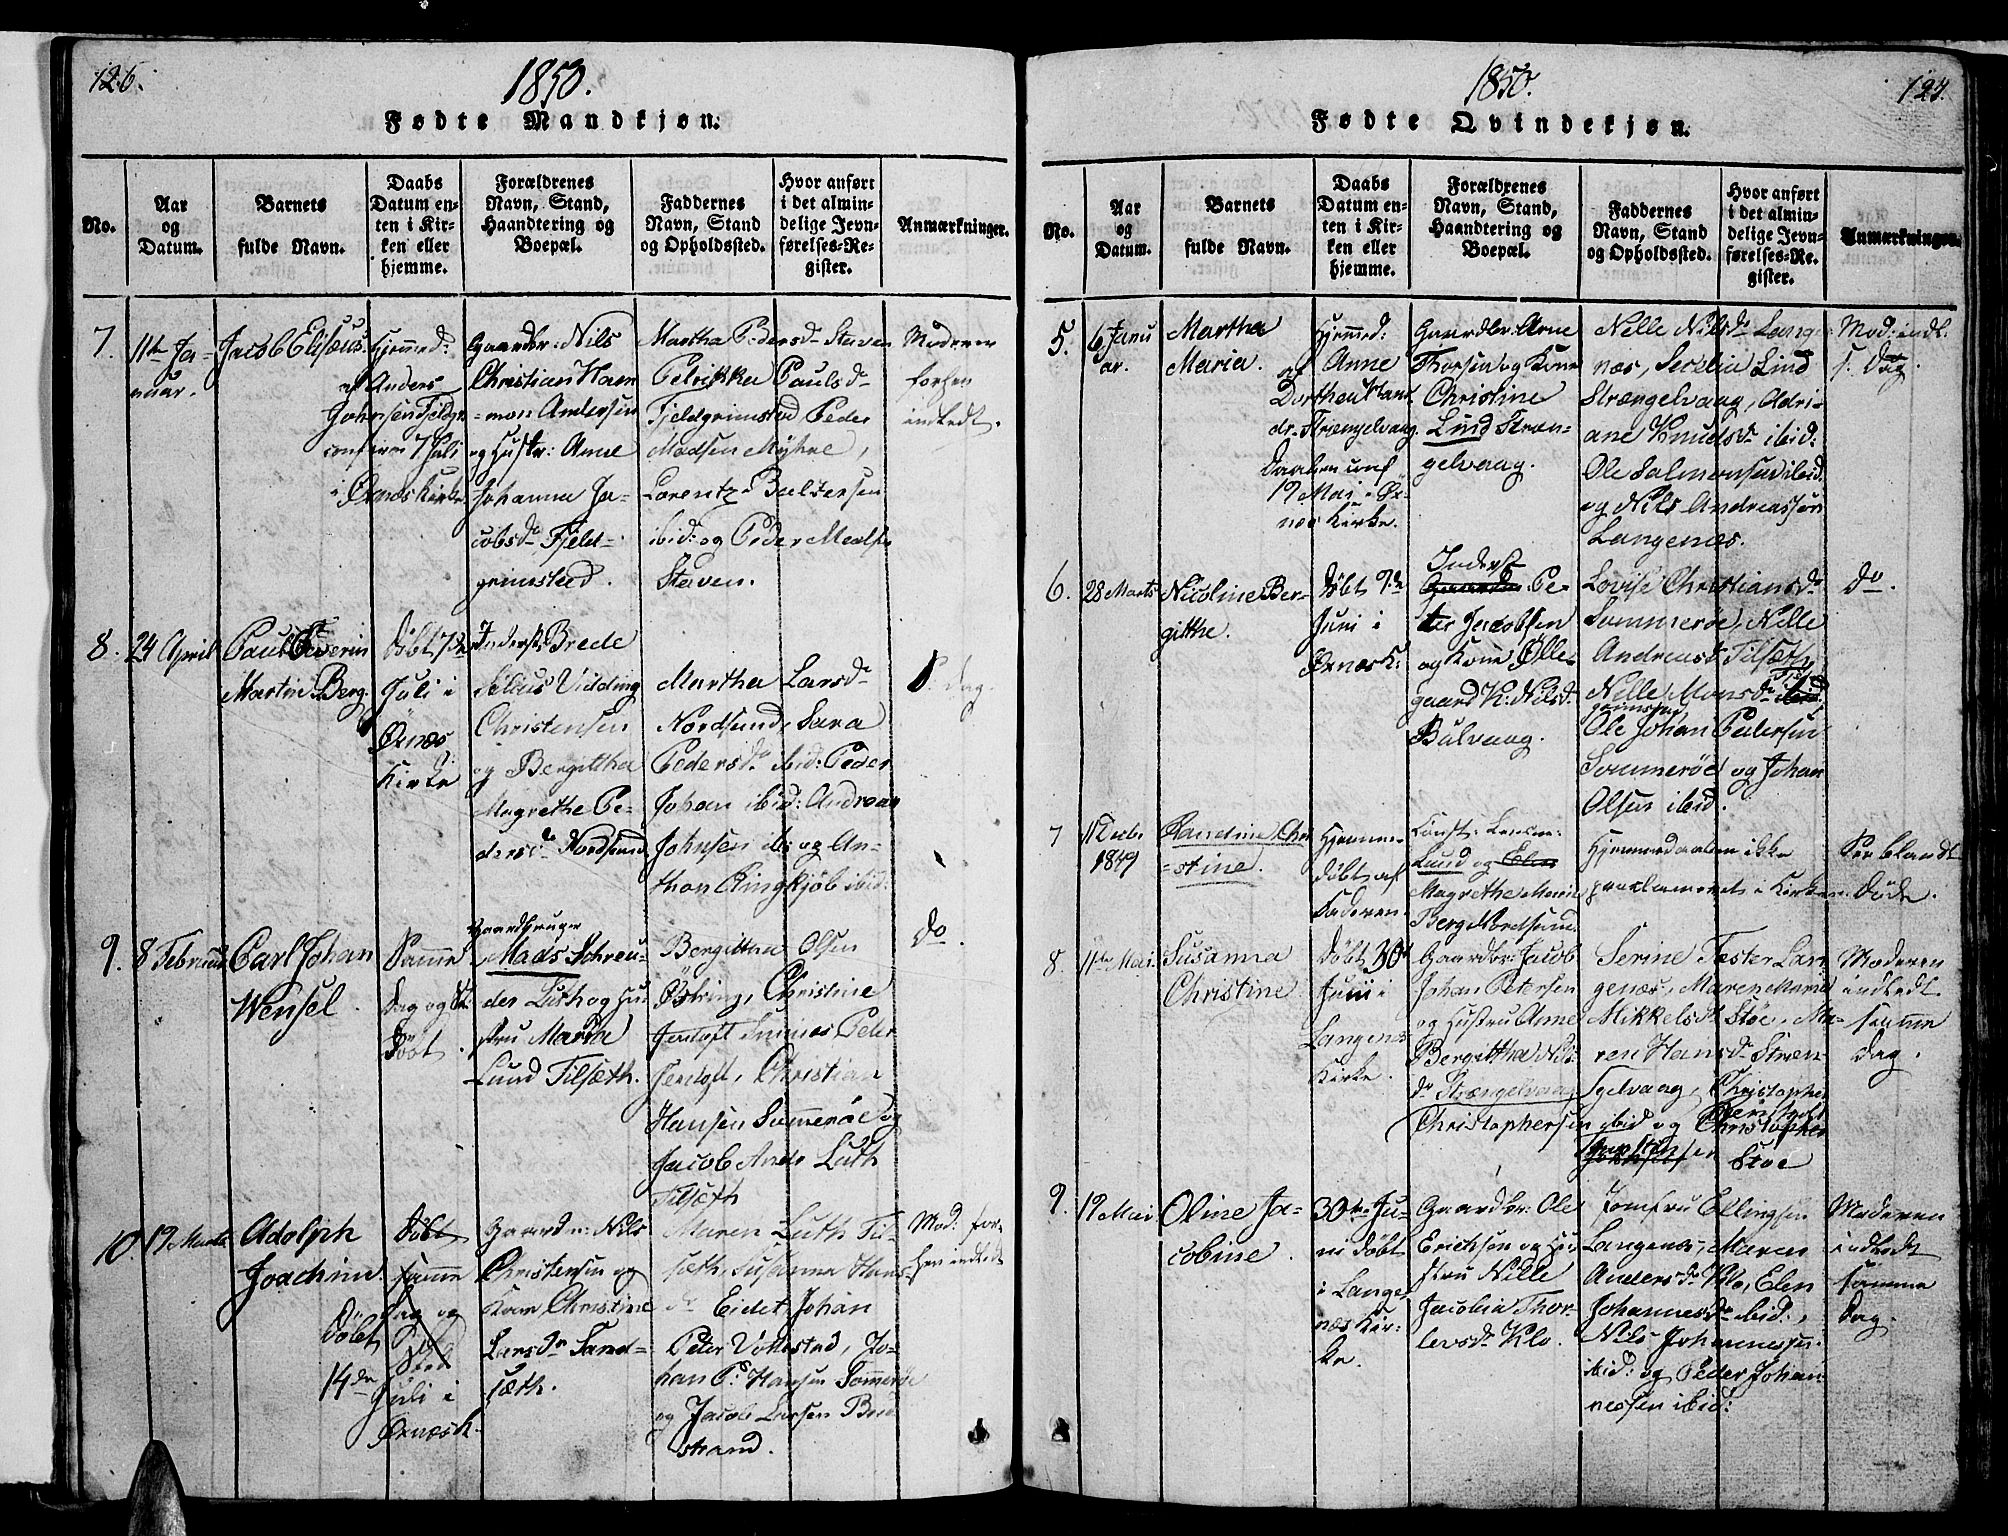 126.
1850.
Fødte Mandkjøn.
No.
Aar
og
Datum.
Barnets
fulde Navn.
Daabs
Datum en-
ten i Kir-
ken eller
hjemme.
Forældrenes
Navn, Stand,
Haandtering og
Boepæl.
Faddernes
Navn, Stand
og Opholdssted.
Hvor anført
i det almin-
delige Jevn-
førelses-Re-
gister.
Anmærkninger.
7.
11te Ja-
nuar.
Jacob Elisæus
Hjemmed:
af Anders
Johnsen Fjeldgr.
confirm 7 Juli
i Øxnæs Kirke
Gaardbr: Nils
Christian Ham-
-mon Andersen
og Hustr: Anne
Johanna Ja-
cobsdr Fjeld-
grimstad.
Martha Pedersdr Staven
Petrikka Paulsdr
Fjeldgrimstad Peder
Madsen Myhre,
Lorentz Baltsersen
ibid: og Peder Madsen
Staven.
Moderen
forhen
indledt.
8.
24 April
Paul Severin
Martin Berg.
Döbt 7de
Juli i
Øxnæs
Kirke
Inderst: Brede
Christensen
og Bergittha
Magrethe Pe-
dersdr Nordsund
Martha Larsdr
Nordsund, Sara
Pedersdr ibid: Peder
Johan ibid: Andreas
Johnsen ib: og An-
thon Ringkjöb ibid:
S. Dag.
9.
8 Februar
Carl Johan
Wensel.
Samme
Dag og St.
Döbt.
Gaardbruger
Mads Schreu-
der Luth og Hu-
stru Maria
Lund Tilsæth.
Bergittha Olsen
Christine
Jentoft Peter
Jentoft, Christian
Hansen Sommerøe og
Jacob Andr Luth
Tilsæth
Do.
10.
19 Marts
Adolph
Joachim.
Döbt
samme
Dag og
Sted
Döbt
14de
Juli i
Øxnæs K.
Gaardm: Nils
Christensen og
Kone Christine
Larsdr Sand-
sæth.
Maren Luth Til-
sæth, Susanna Hans-
dr Eidet, Johan
Peter Vottestad, Jo-
han P: Hansen Sommerøe
og Jacob Larsen Brei-
strand.
Mod: for-
hen indledt
1850.
127.
Fødte Qvindekjøn.
No.
Aar
og
Datum.
Barnets
fulde Navn.
Daabs
Datum en-
ten i Kir-
ken eller
hjemme.
Forældrenes
Navn, Stand,
Haandtering og
Boepæl.
Faddernes
Navn, Stand
og Opholdssted.
Hvor anført
i det almin-
delige Jevn-
førelses-Re-
gister.
Anmærkninger.
5.
6 Janu
ar.
Martha
Maria.
Hjemmed:
af Anne
Dorthea Hans
dr Strængelvaag.
Daaben conf
19 Mai i Øx-
næs Kirke.
Gaardbr: Arne
Thorsen og Kone
Christine
Lind Stræn-
gelvaag.
Nelle Nilsdr Lang-
næs, Secelia Lind
Strængelvaag, Adri-
ane Knudsdr ibid:
Ole Salmonsen ibid
og Nils Andreassen
Langenæs.
Mod: indl.
s. Dag.
6.
28 Marts
Nicoline Ber-
gitthe.
Döbt 9de
Juni i
Øxnæs K:
Inderst
Gaardbr Pe-
ter Jacobsen
og Kone Olle-
gaard K: Nilsdr
Bülvaag.
Lovise Christiansdr
Sommerøe, Nille
Andreasdr Tilsæth,
Nelle Monsdr ibid
grimstad
Ole Johan Pedersen
Sommerøe og Johan
Olsen ibid.
Do.
7
11 Decbr
1849
Randine Chri
-stine.
Hjemme-
döbt af
Faderen.
Const: Lensm:
Lund og Elen
Magrethe Marie
Berg Nordsund.
Hjemmedaaben ikke
proclameret i Kirken
See blandt
Døde.
8.
11te Mai.
Susanna
Christine.
Döbt 30te
Juni i
Langenæs
Kirke.
Gaardbr: Jacob
Johan Petersen
og Hustru Anne
Bergittha Nils-
dr Strængelvaag
Serine Fæster Lan-
genæs, Maren Marie
Mikkelsdr Støe, Ma-
ren Hansdr Stræn-
gelvaag, Christopher
Christophersen ibid og Christopher
Støe
Moderen
indledt
samme
Dag.
9.
19 Mai
Oline Ja-
cobine.
30te Ju-
ni döbt
i Lange-
næs Kir-
ke.
Gaardbr: Ole
Erichsen og Hu-
stru Nille
Jacobia Thor-
levsdr Klo.
Jomfru Ellingsen
Langenæs, Maren
Andersdr Klo, Elen
Johannesdr ibid:,
Nils Johannessen
ibid: og Peder Johan-
nessen ibid:
Moderen
indledt
samme
Dag.